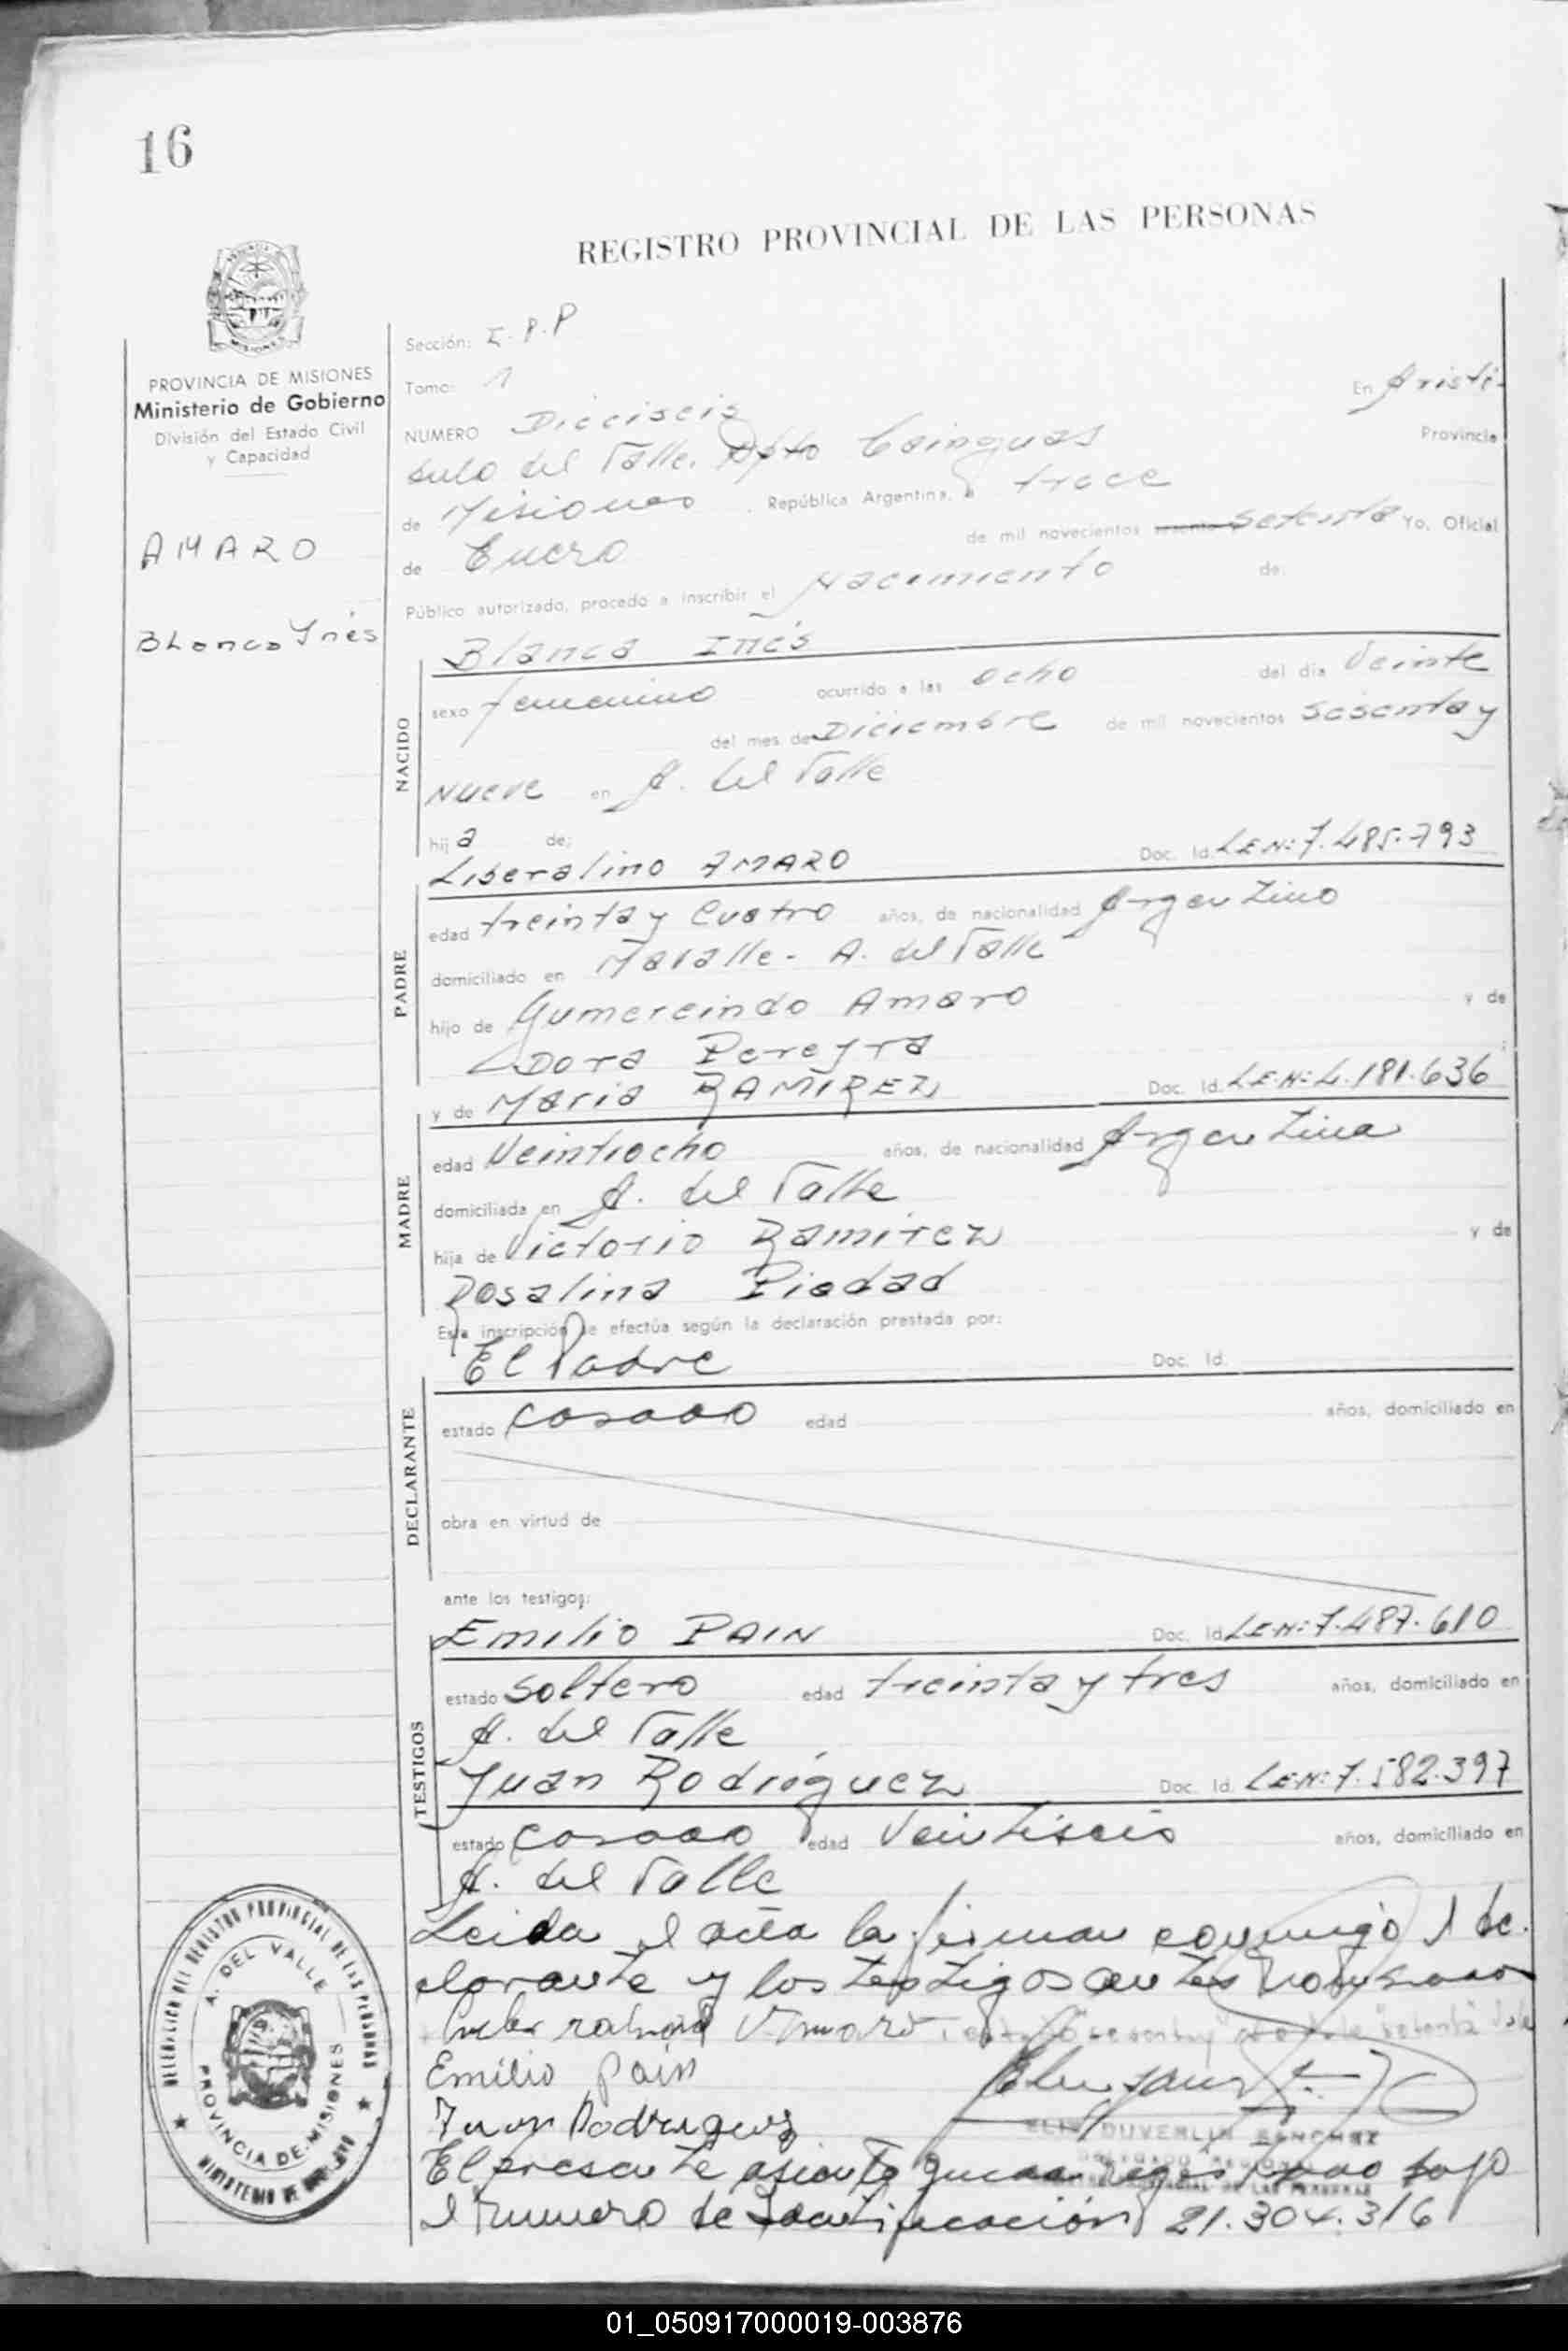 16
REGISTRO PROVINCIAL DE LAS PERSONAS
PROVINCIA DE MISIONES
Ministerio de Gobierno
División del Estado Civil
y Capacidad
AMARO
Blanca Ynés
Sección: I.P.P
Tomo: 1
NUMERO Dieciseis En Aristó-
bulo del Valle. Dpto Cainguas Provincia
de Misiones, República Argentina, a trece
de Enero de mil novecientos setenta Yo, Oficial
Público autorizado, procedo a inscribir el Nacimiento de:
Blanca Inés
NACIDO
sexo femenino ocurrido a las ocho del día Veinte
del mes de Diciembre de mil novecientos sesenta y
Nueve en A. del Valle
hija de:
Liberalino AMARO Doc. Id. L.E.N: 7.485.793
PADRE
edad treinta y cuatro años, de nacionalidad Argentino
domiciliado en Mavalle - A. del Valle
hijo de Gumercindo Amaro y de
Dora Pereyra
y de Maria RAMIREZ Doc. Id. L.E.N: 4.181.636
MADRE
edad Veintiocho años, de nacionalidad Argentina
domiciliada en A. del Valle
hija de Victorio Ramirez y de
Rosalina Piedad
Esta inscripción se efectúa según la declaración prestada por:
El Padre Doc. Id.
DECLARANTE
estado casado edad años, domiciliado en
obra en virtud de
ante los testigos:
Emilio PAIN Doc. Id. L.E.N: 7.487.610
TESTIGOS
estado soltero edad treinta y tres años, domiciliado en
A. del Valle
Juan Rodríguez Doc. Id. L.E.N: 7.582.397
estado casado edad Veintiseis años, domiciliado en
A. del Valle
Leida el acta la firman conmigo el de-
clarante y los testigos antes nombrados
Amaro
Emilio Pain
Juan Rodriguez
DUVERLIN SANCHEZ
El presente asiento queda registrado bajo
el numero de Identificación 21.304.316
DELEGACION DEL REGISTRO PROVINCIAL DE LAS PERSONAS
A. DEL VALLE
PROVINCIA DE MISIONES
MINISTERIO DE GOBIERNO
01_050917000019-003876